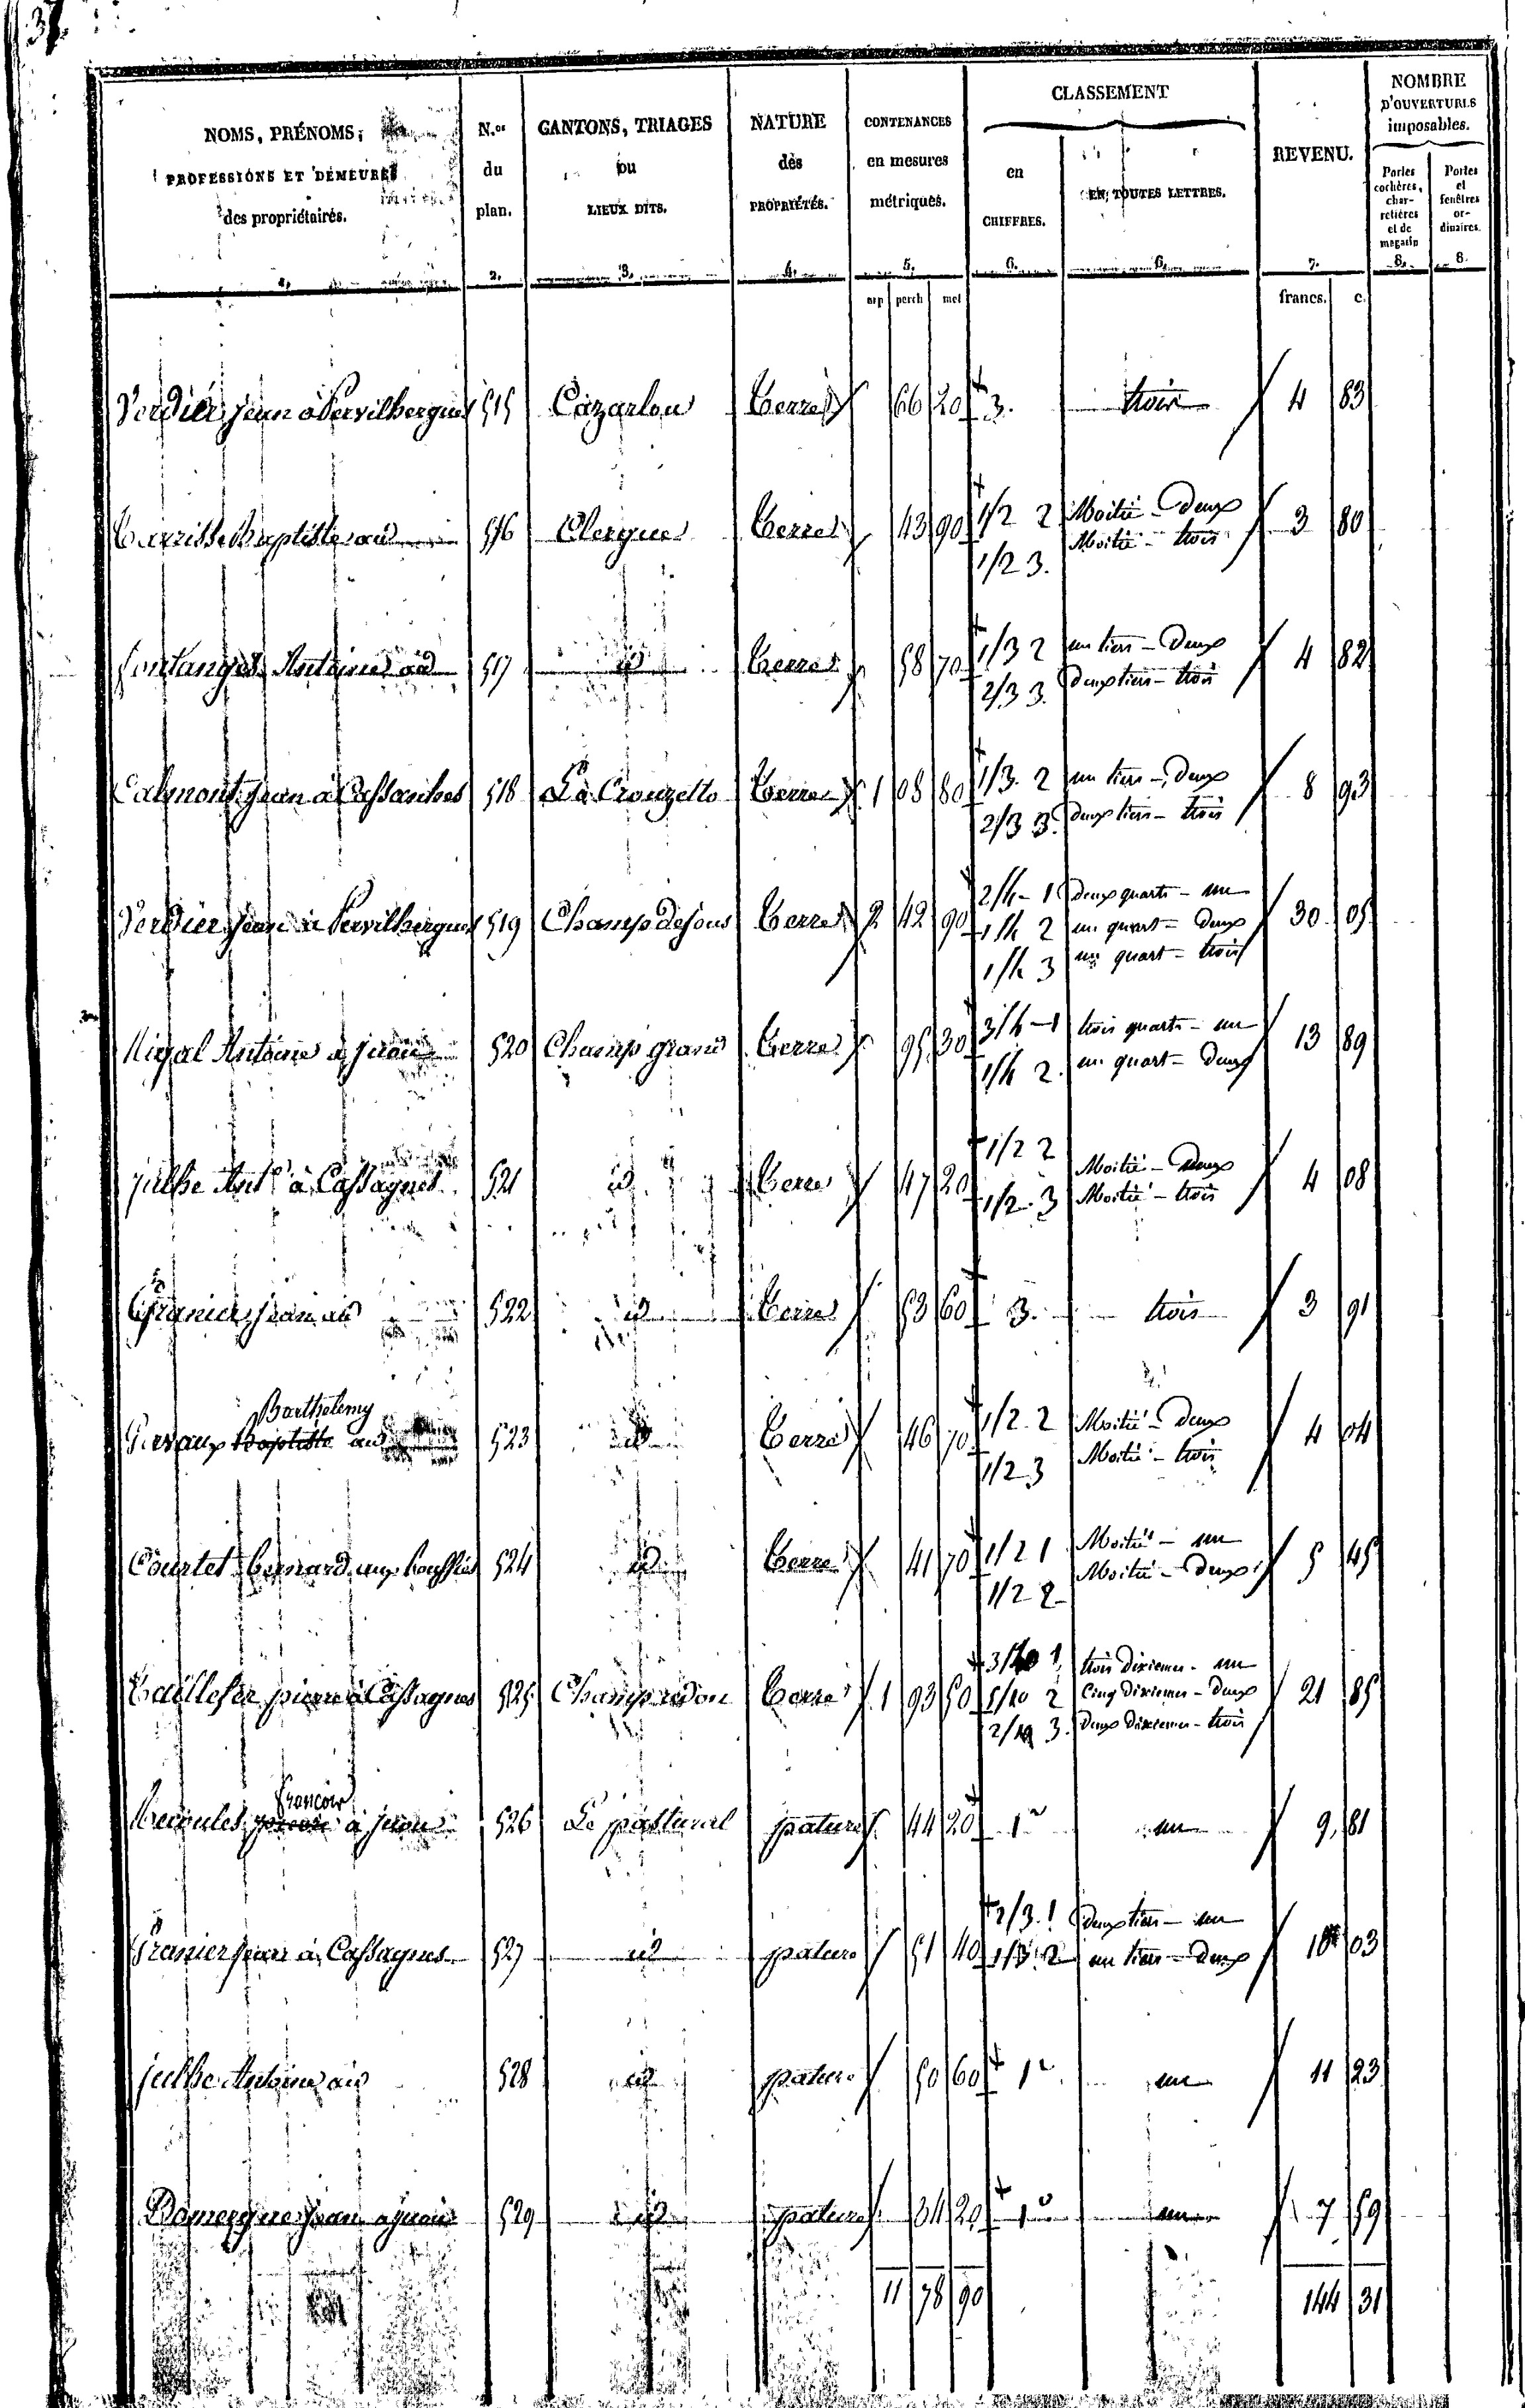 37.
NOMS, PRÉNOMS,
PROFESSIONS ET DEMEURES
des propriétaires.
N.os
du
plan.
CANTONS, TRIAGES
ou
LIEUX DITS.
NATURE
des
PROPRIÉTÉS.
CONTENANCES
en mesures
métriques.
CLASSEMENT
en
CHIFFRES.
EN TOUTES LETTRES.
REVENU.
NOMBRE
D'OUVERTURES
imposables.
Portes
cochères,
char-
retières
et de
magasin
Portes
et
fenêtres
or-
dinaires.
1. 2. 3. 4. 5. 6. 6. 7. 8. 8.
arp perch met francs. c.
Verdier jean à Pervilhergues 515 Cazarlou Terre 66 20 3. trois 4 83
Baptiste au 516 Clergue Terre 43 90 1/2 2 Moitié - deux 3 80
1/2 3. Moitié - trois
Fontanges Antoine au 517 id Terre 58 70 1/3 2 un tiers - deux 4 82
2/3 3. deux tiers - trois
Calmont jean à Cassanhes 518 La Crouzette Terre 1 08 80 1/3 2 un tiers - deux 8 93
2/3 3. deux tiers - trois
Verdier jean à Pervilhergues 519 Champ desous Terre 2 42 90 2/4 - 1 deux quarts - un 30 05
1/4 2 un quart - deux
1/4 3 un quart - trois
Nigal Antoine à juou 520 Champ grand Terre 95 30 3/4 - 1 trois quarts - un 13 89
1/4 2. un quart - deux
julhe Ant.e à Cassagnes 521 id Terre 47 20 1/2 2 Moitié - deux 4 08
1/2 3 Moitié - trois
Granier jean au 522 id Terre 53 60 3. trois 3 91
Barthelemy
Baptiste au 523 id Terre 46 70 1/2 2 Moitié - deux 4 04
1/2 3 Moitié - trois
Courtet bernard aux 524 id Terre 41 70 1/2 1 Moitié - un 5 45
1/2 2 Moitié - deux
Taillefer pierre à Cassagnes 525 Champ Terre 1 93 50 3/10 1 trois dixiemes - un 21 85
5/10 2 Cinq dixiemes - deux
2/10 3. deux dixiemes - trois
francois
à juou 526 Le pastural pature 44 20 1re un 9 81
Granier jean à Cassagnes 527 id pature 51 40 2/3 1 deux tiers - un 10 03
1/3 2 un tiers - deux
julhe Antoine au 528 id pature 50 60 1re un 11 23
Domergue jean à juou 529 id pature 34 20 1re un 7 59
11 78 90 144 31